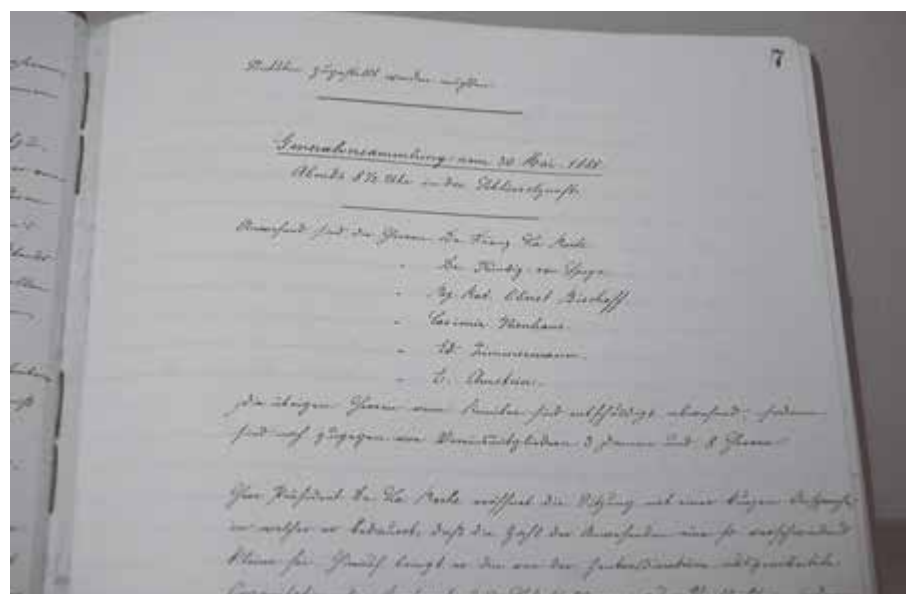 7
zugestellt werden müssen.
Generalversammlung vom 30 Mai 1888
Abends 8 ½ Uhr in der Schlüsselzunft.
Anwesend sind die Herren Dr. Franz La Roche
" Dr. Kündig von Speyr
" Reg. Rat. Oberst Bischoff
" Casimir Nienhaus
" Ed. Zimmermann
"
die übrigen Herren vom Komitee sind entschuldigt abwesend; sodann
sind noch zugegen von Vereinsmitgliedern 3 Damen und 8 Herren
Herr Präsident Dr. La Roche eröffnet die Sitzung mit einer kurzen Ansprache
in welcher er bedauert, daß die Zahl der Anwesenden eine so verschwindend
kleine sei. Hierauf bringt er den von der